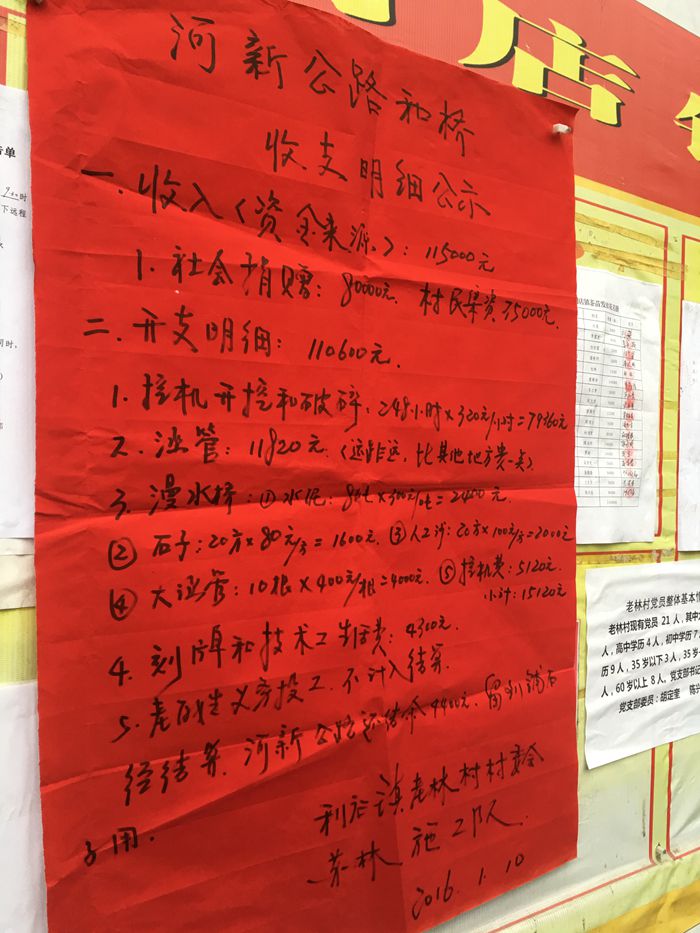 店
河新公路和桥
收支明细公示
一.收入(资金来源):115000元
1.社会捐赠:80000元.村民集资35000元.
二.开支明细:110600元.
1.挖机开挖和破碎:248小时×320元/小时=79360元
2.涵管:11820元.(运距远,比其他地方贵一点)
3.漫水桥:①水泥:8t×300元/t=2400元.
②石子:20方×80元/方=1600元.③人工沙:20方×100元/方=2000元
④大涵管:10根×400元/根=4000元.⑤挖机费:5120元.
小计:15120元
4.刻牌和技术工生活费:4300元.
5.老百姓义务投工.不计入结算.
经结算.河新公路还结余4400元.留到铺石
子用.
利店镇老林村村委会
老林施工队
2016.1.10
时
下远程
老林村党员整体基本情
老林村现有党员 21 人,其中
人,高中学历 4 人,初中学历 7
历 9 人,35 岁以下 3 人,35 岁-
人,60 岁以上 8 人。党支部书记
党支部委员:胡定奎 陈